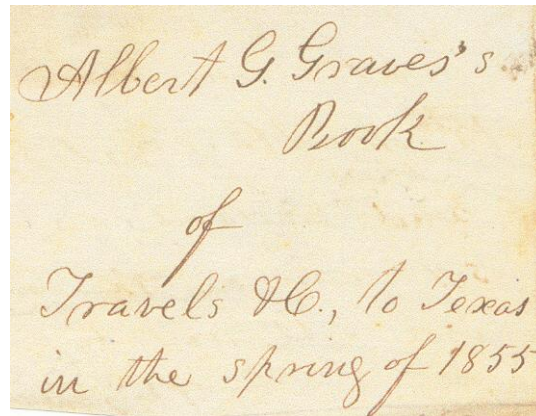 Albert G. Graves's
Book
of
Travels &C., to Texas
in the spring of 1855